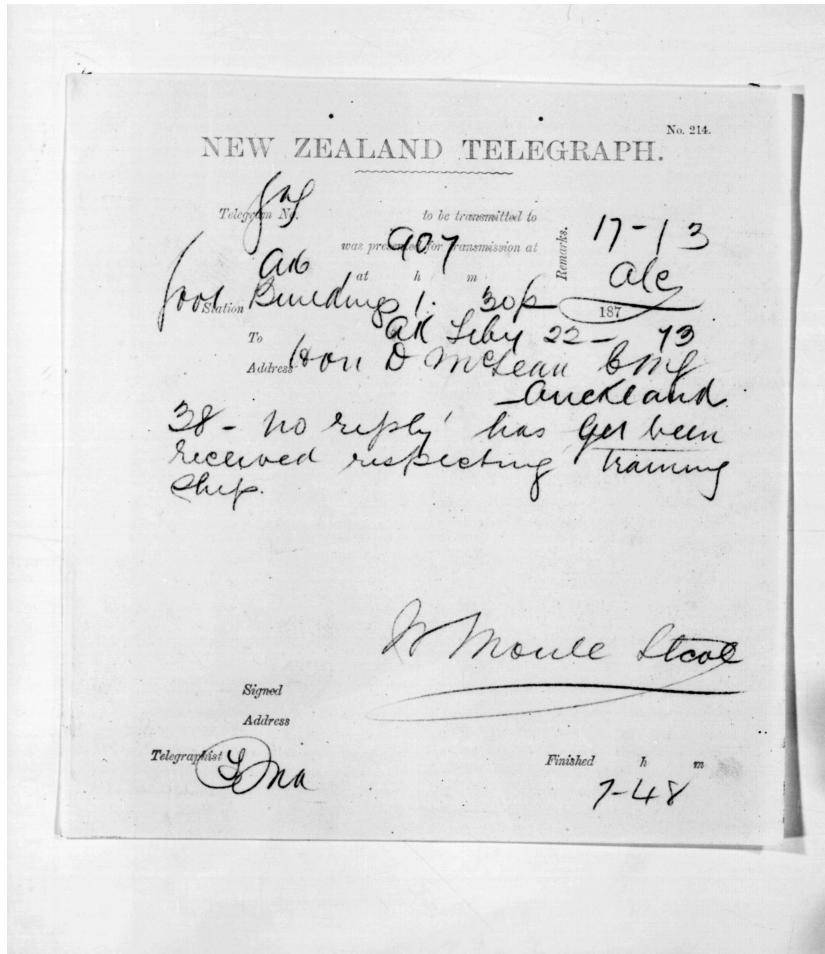 No. 214.
NEW ZEALAND TELEGRAPH.
Telegram No. to be transmitted to
Remarks. 17-13
was presented for transmission at 907
Ak at h m
Station Buildings 1. 30p 187
To Ak Feby 22- 73
Address Hon D McLean CMG
Auckland
38- No reply has yet been
received respecting Training
Ship.
W Moule
Signed
Address
Telegraphist
Finished h m
7-48